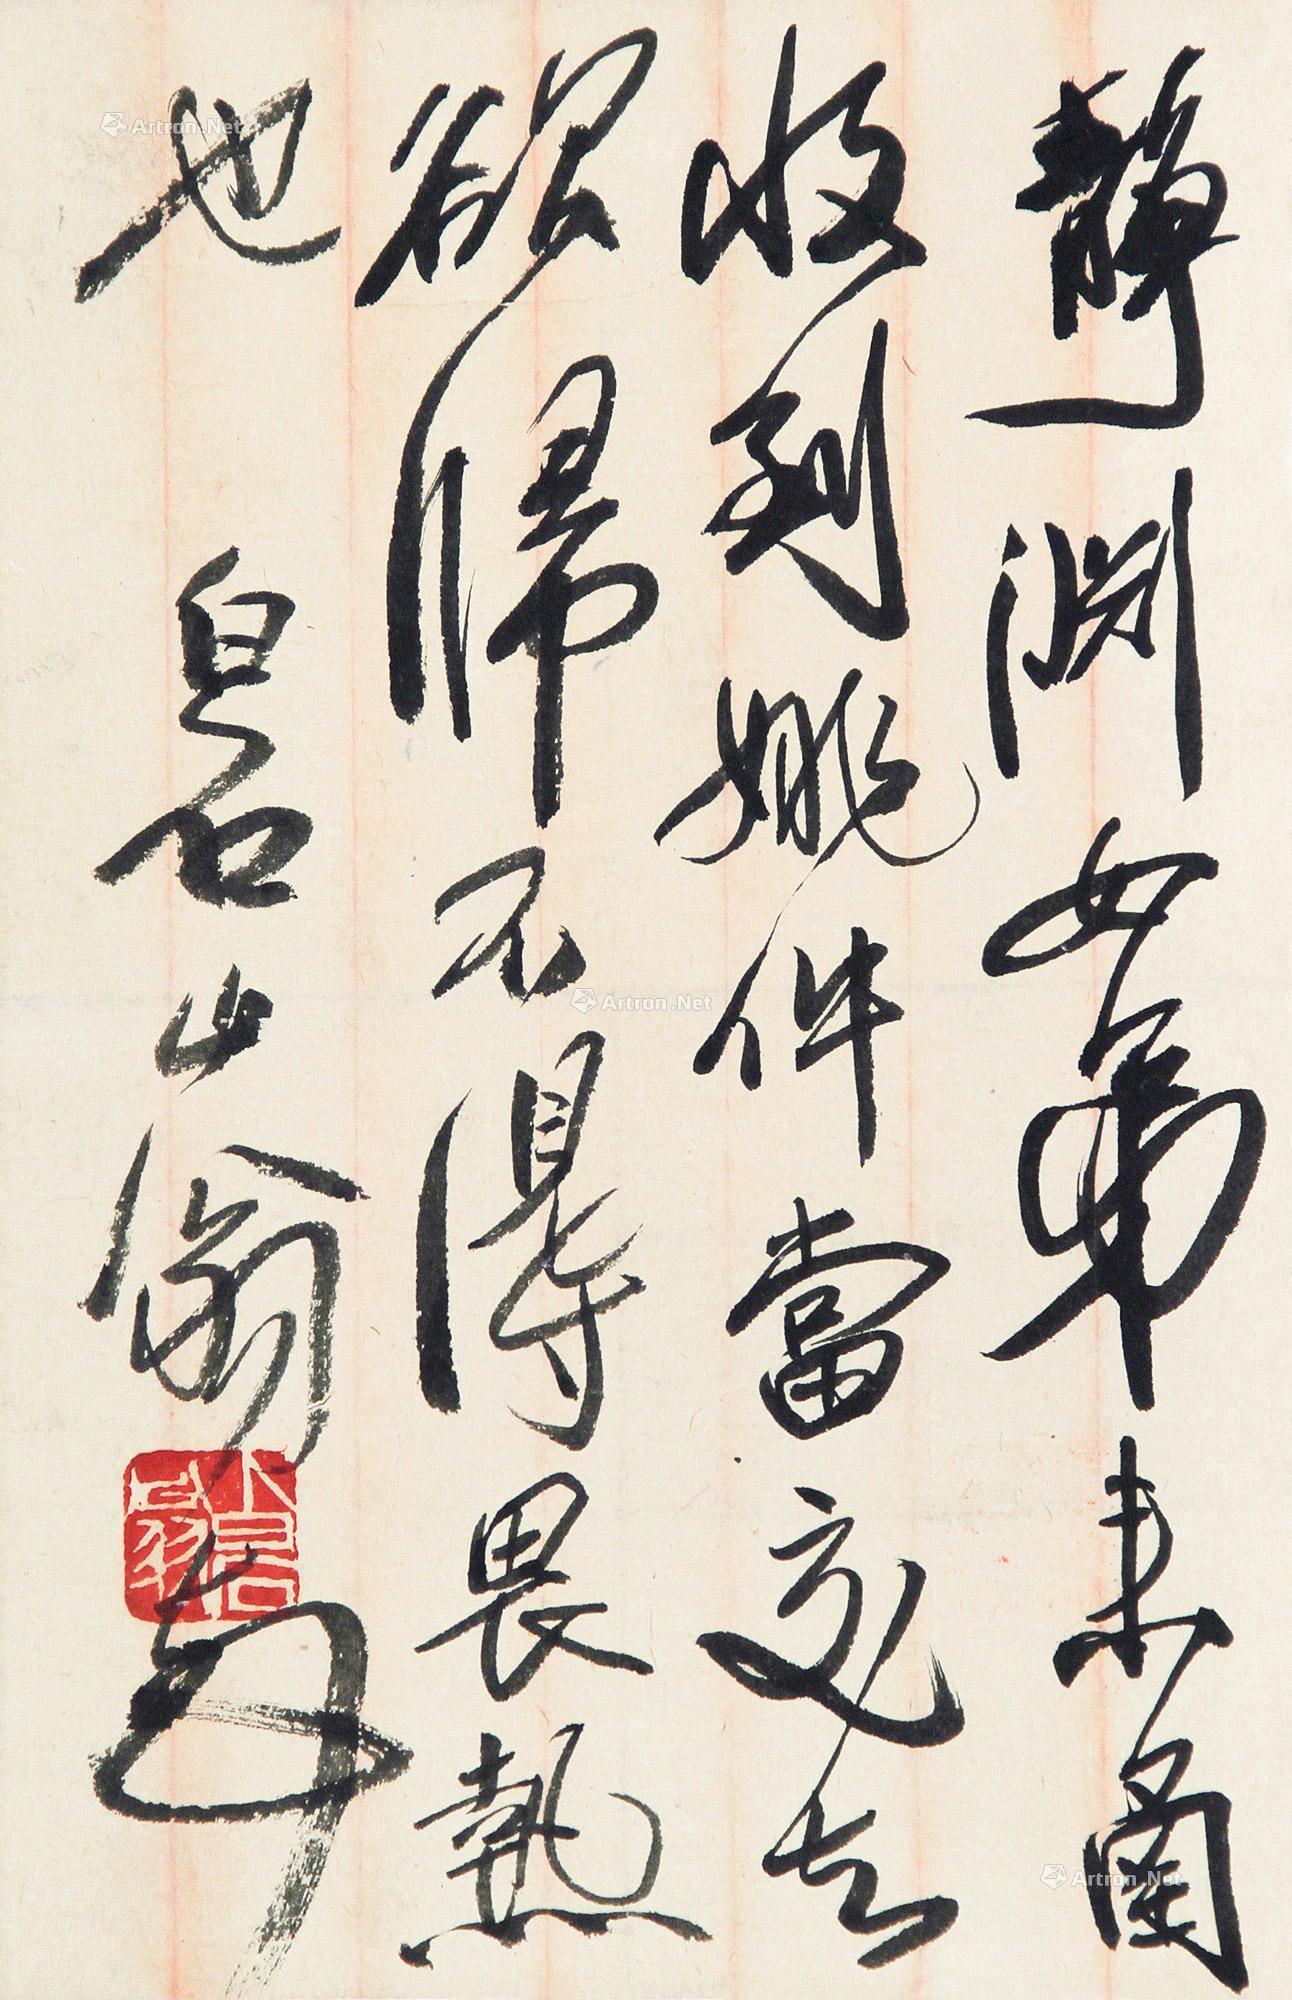 靜淵女弟来函
收到姚件當交去
欲歸不得畏熱
也 白石山翁
Artron.Net
Artron.Net
Artron.Net